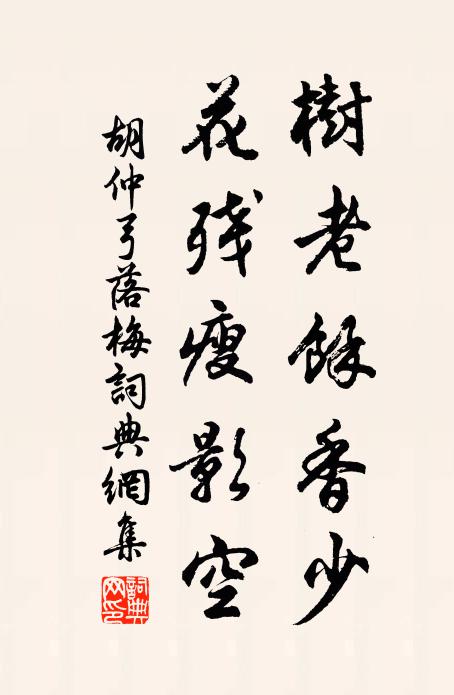 樹老餘香少
花残瘦影空
胡仲弓落梅詞典網集
詞典网印